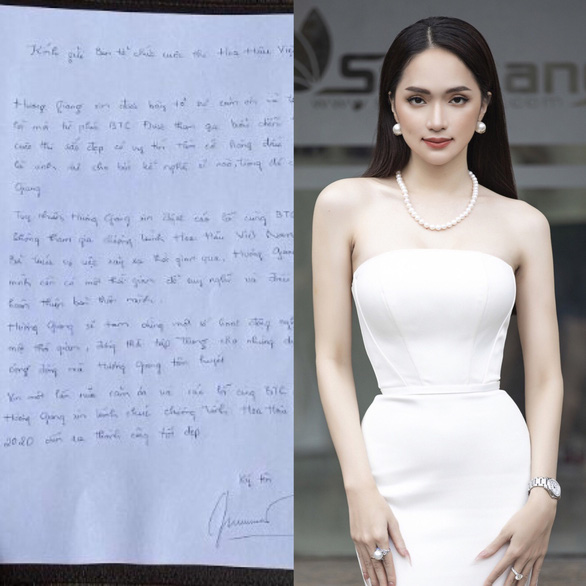 Kính gửi Ban tổ chức cuộc thi Hoa Hậu Việ
Hương Giang xin được bày tỏ sự cảm ơn và
BTC được tham gia
cuộc thi sắc đẹp có uy tín tầm cỡ hàng đầu
là vinh dự cho bất kể nghệ sĩ nào, trong đó có
Giang
Tuy nhiên Hương Giang xin được cáo lỗi cùng BTC
không tham gia chương trình Hoa Hậu Việt Nam
sự việc xảy ra thời gian qua, Hương Giang
mình cần có một thời gian để suy nghĩ và điều
hoàn thiện bản thân mình.
Hương Giang sẽ tạm dừng một số hoạt động ngh
một thời gian, đồng thời tập trung cho những dự
cộng đồng mà Hương Giang tâm huyết
Xin một lần nữa cảm ơn và cáo lỗi cùng BTC
Hương Giang xin kính chúc chương trình Hoa Hậu
2020 diễn ra thành công tốt đẹp
Ký tên
S ang
.com